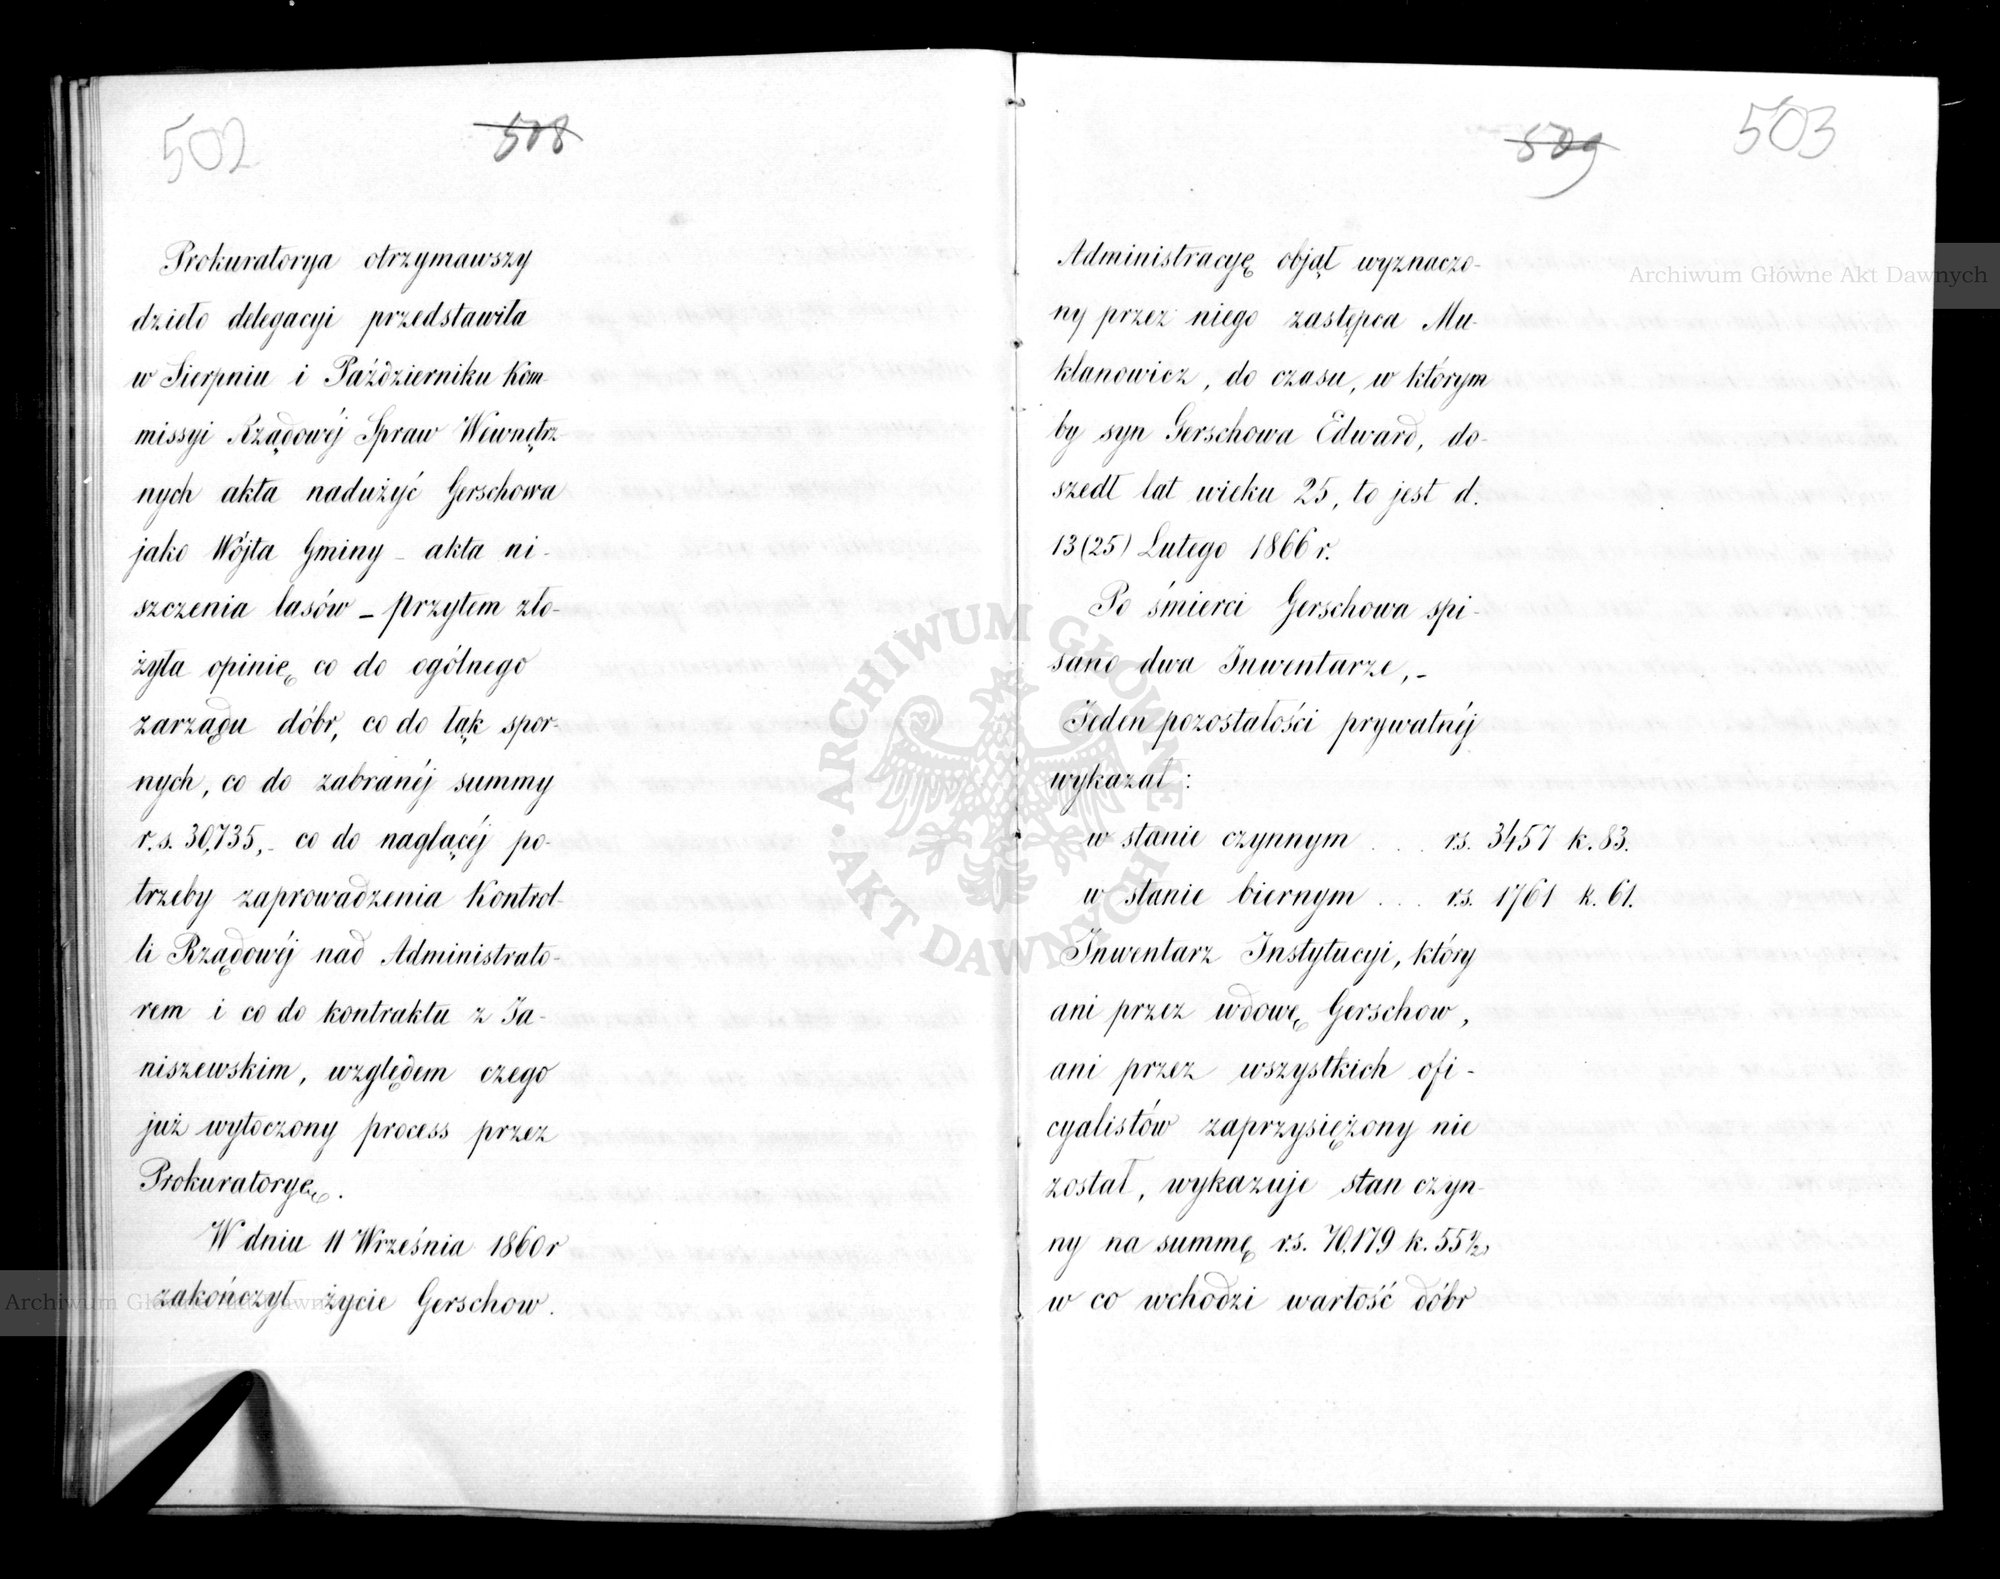 502
508
Prokuratorya otrzymawszy
dzieło delegacyi przedstawiła
w Sierpniu i Październiku Kom-
missyi Rządowéj Spraw Wewnętrz-
nych akta nadużyć Gerschowa
jako Wójta Gminy - akta ni-
szczenia lasów - przytem zło-
żyła opinię co do ogólnego
zarządu dóbr, co do łąk spor-
nych, co do zabranéj summy
r.s. 30,735, - co do naglącéj po-
trzeby zaprowadzenia Kontrol-
li Rządowéj nad Administrato-
rem i co do kontraktu z Ja-
niszewskim, względem czego
już wytoczony process przez
Prokuratoryę.
W dniu 11 Września 1860 r
zakończył życie Gerschow.
509
503
Administracyę objął wyznaczo-
ny przez niego zastępca Mu-
klanowicz, do czasu, w którym
by syn Gerschowa Edward, do-
szedł lat wieku 25, to jest d.
13 (25) Lutego 1866 r.
Po śmierci Gerschowa spi-
sano dwa Inwentarze, -
Jeden pozostałości prywatnéj
wykazał:
w stanie czynnym . . . rs. 3457 k. 83.
w stanie biernym . . . r.s. 1761 k. 61.
Inwentarz Instytucyi, który
ani przez wdowę Gerschow,
ani przez wszystkich ofi-
cyalistów zaprzysiężony nie
został, wykazuje stan czyn-
ny na summę r.s. 70.179 k. 55½,
w co wchodzi wartość dóbr
Archiwum Główne Akt Dawnych
Archiwum Główne Akt Dawnych
ARCHIWUM GŁÓWNE AKT DAWNYCH